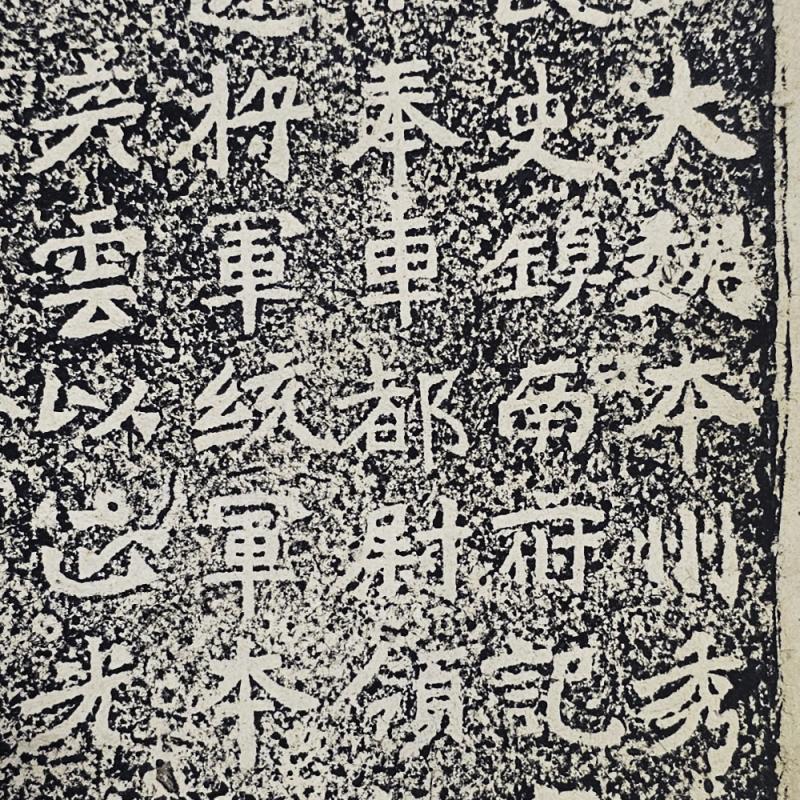 大魏本州秀
史鎮南府記
奉車都尉領
将軍統軍本
雲以